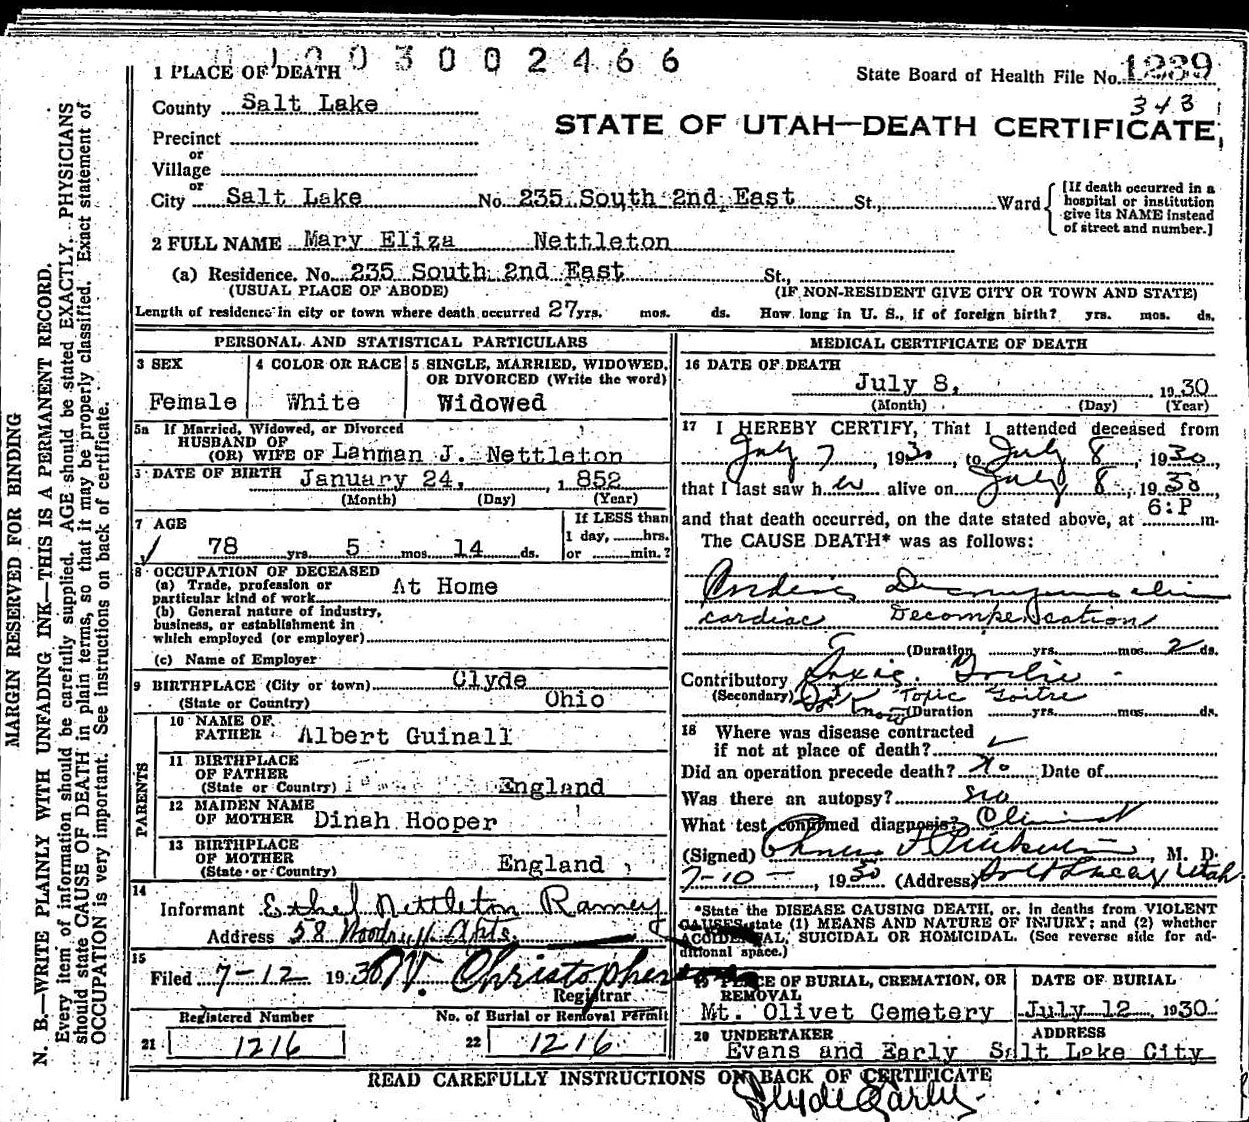 003002466
1 PLACE OF DEATH
State Board of Health File No. 1239
343
County Salt Lake
STATE OF UTAH—DEATH CERTIFICATE
Precinct
or
Village
or
City Salt Lake No. 235 South 2nd East St., Ward
[If death occurred in a
hospital or institution
give its NAME instead
of street and number.]
2 FULL NAME Mary Eliza Nettleton
(a) Residence. No. 235 South 2nd East St.,
(USUAL PLACE OF ABODE) (IF NON-RESIDENT GIVE CITY OR TOWN AND STATE)
Length of residence in city or town where death occurred 27 yrs. mos. ds. How long in U. S., if of foreign birth? yrs. mos. ds.
PERSONAL AND STATISTICAL PARTICULARS
3 SEX
Female
4 COLOR OR RACE
White
5 SINGLE, MARRIED, WIDOWED,
OR DIVORCED (Write the word)
Widowed
5a If Married, Widowed, or Divorced
HUSBAND OF
(OR) WIFE OF Lanman J. Nettleton
DATE OF BIRTH January 24, 1852
(Month) (Day) (Year)
7 AGE
78 yrs. 5 mos. 14 ds.
If LESS than
1 day, hrs.
or min.?
8 OCCUPATION OF DECEASED
(a) Trade, profession or
particular kind of work At Home
(b) General nature of industry,
business, or establishment in
which employed (or employer)
(c) Name of Employer
9 BIRTHPLACE (City or town) Clyde
(State or Country) Ohio
PARENTS
10 NAME OF
FATHER Albert Guinall
11 BIRTHPLACE
OF FATHER
(State or Country) England
12 MAIDEN NAME
OF MOTHER Dinah Hooper
13 BIRTHPLACE
OF MOTHER
(State or Country) England
14
Informant Ethel Nettleton Ramey
Address 58 Woodruff Apts.
15
Filed 7-12 1930 W. Christopherson
Registrar
Registered Number
21 1216
No. of Burial or Removal Permit
22 1216
MEDICAL CERTIFICATE OF DEATH
16 DATE OF DEATH
July 8, 1930
(Month) (Day) (Year)
17 I HEREBY CERTIFY, That I attended deceased from
July 7, 1930, to July 8, 1930,
that I last saw her alive on July 8, 1930
and that death occurred, on the date stated above, at 6:P m.
The CAUSE DEATH* was as follows:
Cardiac Decompensation
cardiac Decompensation
(Duration yrs. mos. 2 ds.
Contributory Toxic Goitre
(Secondary) Don't Toxic Goitre
know (Duration yrs. mos. ds.
18 Where was disease contracted
if not at place of death?
Did an operation precede death? No Date of
Was there an autopsy? no
What test confirmed diagnosis? Clinical
(Signed) M. D.
7-10-, 1930 (Address) Salt Lake, Utah
*State the DISEASE CAUSING DEATH, or, in deaths from VIOLENT
CAUSES, state (1) MEANS AND NATURE OF INJURY; and (2) whether
ACCIDENTAL, SUICIDAL OR HOMICIDAL. (See reverse side for ad-
ditional space.)
19 PLACE OF BURIAL, CREMATION, OR
REMOVAL
Mt. Olivet Cemetery
DATE OF BURIAL
July 12, 1930
20 UNDERTAKER ADDRESS
Evans and Early Salt Lake City
READ CAREFULLY INSTRUCTIONS ON BACK OF CERTIFICATE
Clyde Early
MARGIN RESERVED FOR BINDING
N. B.—WRITE PLAINLY WITH UNFADING INK—THIS IS A PERMANENT RECORD.
Every item of information should be carefully supplied. AGE should be stated EXACTLY. PHYSICIANS
should state CAUSE OF DEATH in plain terms, so that it may be properly classified. Exact statement of
OCCUPATION is very important. See instructions on back of certificate.